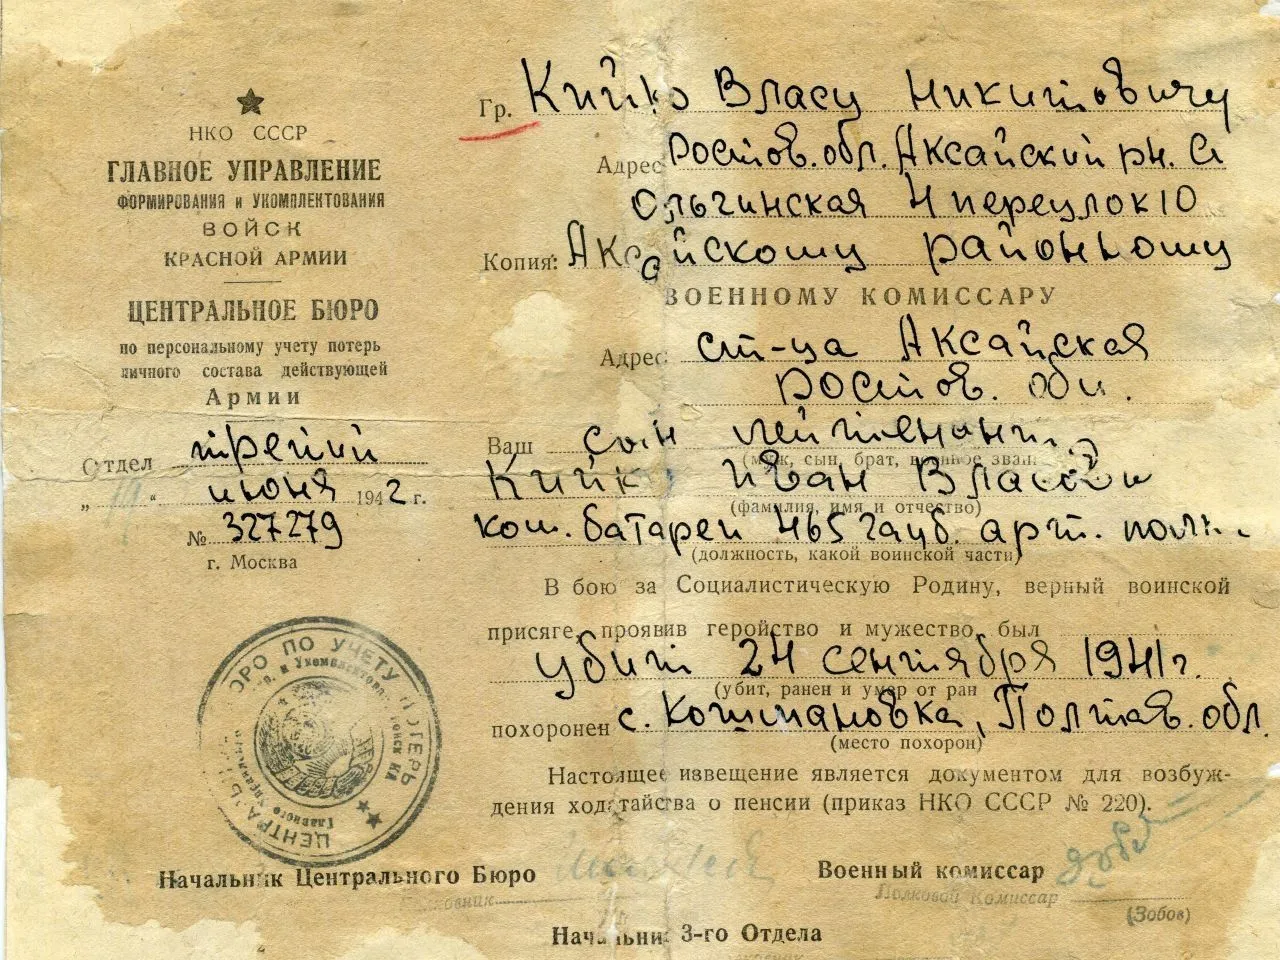 НКО СССР
ГЛАВНОЕ УПРАВЛЕНИЕ
ФОРМИРОВАНИЯ и УКОМПЛЕКТОВАНИЯ
ВОЙСК
КРАСНОЙ АРМИИ
ЦЕНТРАЛЬНОЕ БЮРО
по персональному учету потерь
личного состава действующей
Армии
Отдел третий
„ “ июня 1942 г.
№ 327279
г. Москва
Гр. Кийко Власу Никитовичу
Адрес Ростов. обл. Аксайский рн. С
Ольгинская 4 переулок 10
Копия: Аксайскому районному
ВОЕННОМУ КОМИССАРУ
Адрес ст-ца Аксайская
Ростов. обл.
Ваш сын лейтенант
(муж, сын, брат, военное зван
Кийк Иван Власови
(фамилия, имя и отчество)
ком. батареи 465 гауб. арт. полк
(должность, какой воинской части)
В бою за Социалистическую Родину, верный воинской
присяге, проявив геройство и мужество, был
убит 24 сентября 1941 г.
(убит, ранен и умер от ран
похоронен с. Кошмановка, Полтав. обл.
(место похорон)
Настоящее извещение является документом для возбуж-
дения ходатайства о пенсии (приказ НКО СССР № 220).
Начальник Центрального Бюро
Военный комиссар
Полковой Комиссар
(Зобов)
Начальник 3-го Отдела